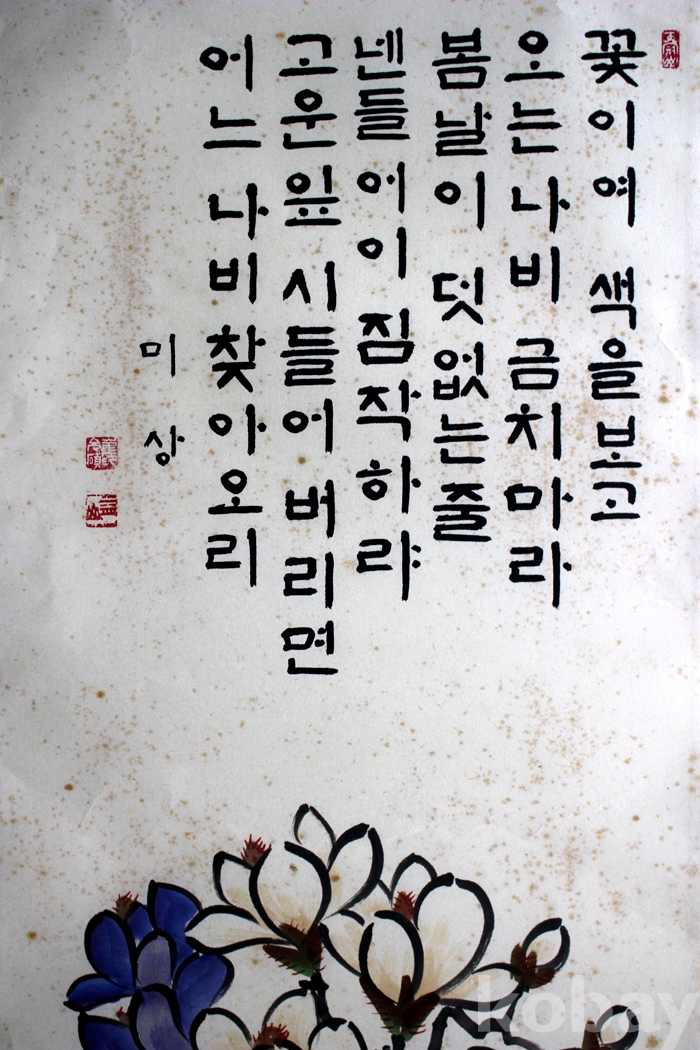 꽃이여 색을보고
오는나비 금치마라
봄날이 덧없는줄
낸들어이 짐작하랴
고운잎 시들어 버리면
어느 나비찾아오리
미상
kobay